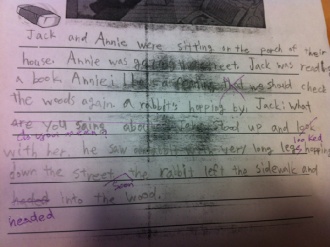 Jack and Annie were sitting on the porch of their
house. Annie was the street. Jack was reading
a book. Annie: I have a feeling that we should check
the woods again. a rabbit's hopping by. Jack: what
are you saing about stood up and look
do you mean looked
with her. he saw a rabbit with very long legs hopping
down the street. the raibit left the sidewalk and
Soon
headed into the wood.
headed